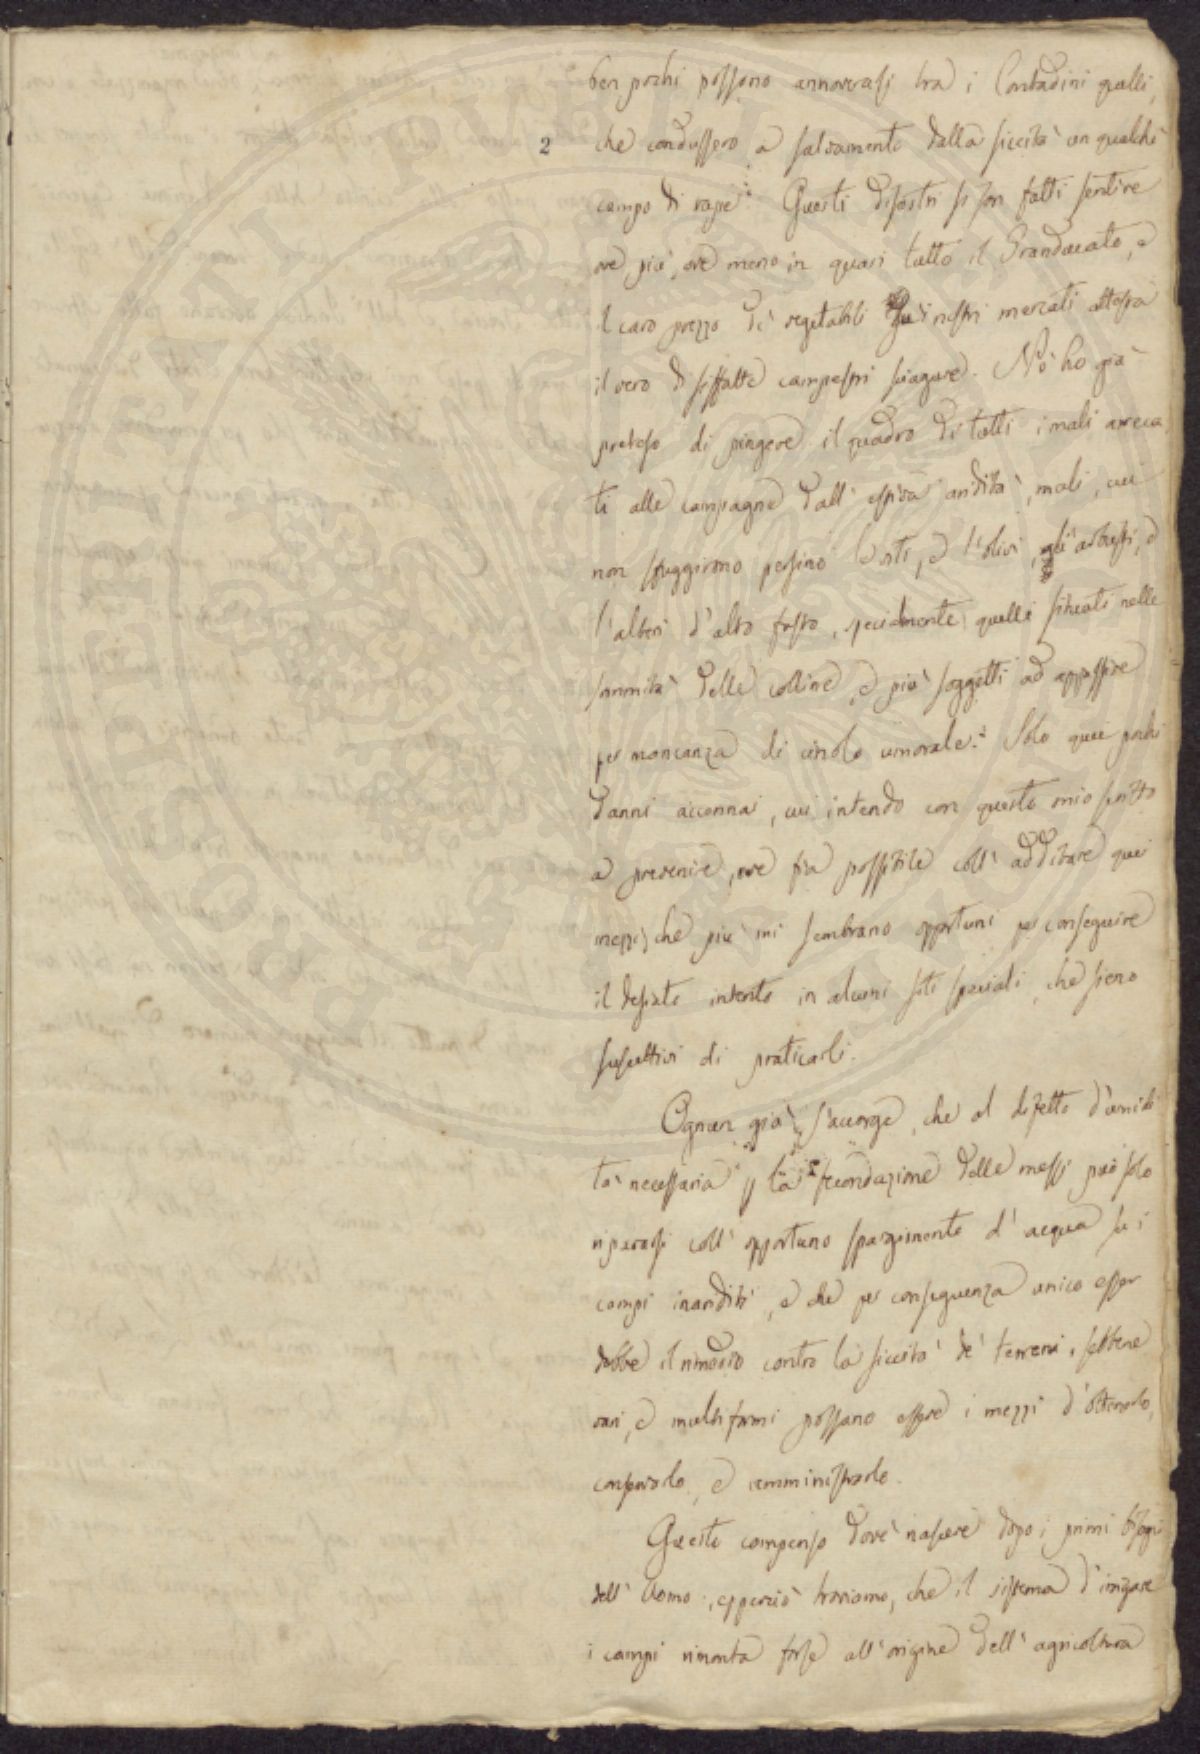 ben pochi possono annoverarsi tra i Contadini quelli,
2
che condussero a salvamento dalla siccità un qualche
campo di rape. Questi disastri si son fatti sentire
ove più, ove meno in quasi tutto il Granducato, e
il caro prezzo di vegetabili nostri mercati attesta
il vero di siffatte campestri sciagure. Nò ho già
preteso di pingere il quadro di tutti i mali arreca
ti alle campagne dall' estiva aridità, mali, cui
non sfuggirono persino le viti, e l'olivi, gli arbusti, e
l'alberi d'alto fusto, specialmente quelli situati nelle
sommità delle colline, e più soggetti ad appassire
per mancanza di cibo umorale. Solo quei pochi
danni accennai, cui intendo con questo mio scritto
a prevenire, ove fia possibile coll' additare quei
mezzi, che più mi sembrano opportuni per conseguire
il desiato intento in alcuni siti speciali, che sieno
suscettivi di praticarli.
Ognun già s'accorge, che al difetto d'umidi
tà necessaria p la fecondazione delle messi può solo
ripararsi coll' opportuno spargimento d' acqua su i
campi inariditi, e che per conseguenza unico esser
debbe il rimedio contro la siccità de' terreni, sebbene
varj, e multiformi possano essere i mezzi d'ottenerlo,
conservarlo, e amministrarlo.
Questo compenso dovè nascere dopo i primi bisogni
dell' Uomo; epperciò troviamo, che il sistema d'irrigare
i campi rimonta forse all' origine dell' agricoltura